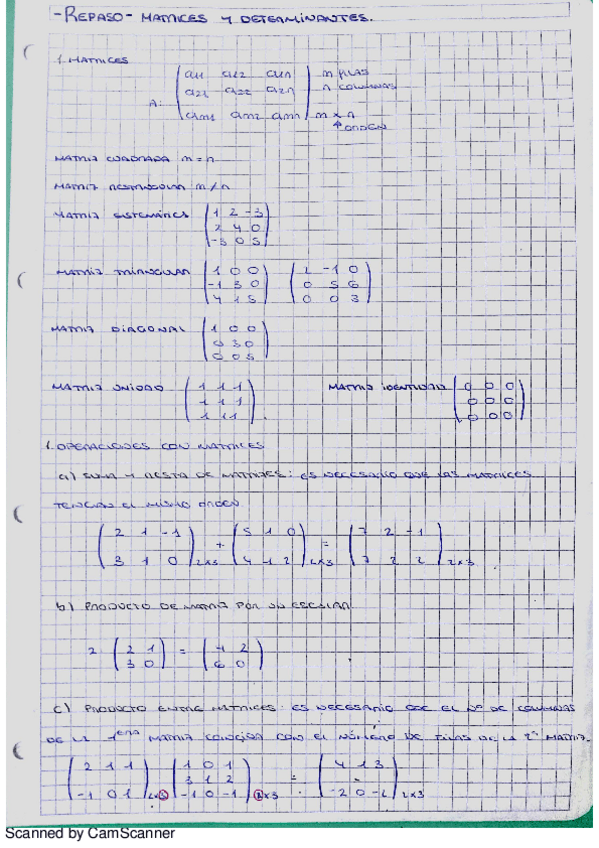 - REPASO - MATRICES Y DETERMINANTES.
1. MATRICES
A: ( a11 a12 a1n ) m FILAS
( a21 a22 a2n ) n COLUMNAS
( am1 am2 amn ) m x n
ORDEN
MATRIZ CUADRADA m = n
MATRIZ RECTANGULAR m ≠ n
MATRIZ
( 1 2 -3 )
( 2 4 0 )
( -3 0 5 )
MATRIZ TRIANGULAR
( 1 0 0 ) ( 2 -1 0 )
( -1 3 0 ) ( 0 5 6 )
( 4 1 5 ) ( 0 0 3 )
MATRIZ DIAGONAL
( 1 0 0 )
( 0 3 0 )
( 0 0 5 )
MATRIZ UNIDAD MATRIZ IDENTIDAD
( 1 1 1 ) ( 0 0 0 )
( 1 1 1 ) ( 0 0 0 )
( 1 1 1 ) . ( 0 0 0 )
1. OPERACIONES CON MATRICES
a) SUMA Y RESTA DE MATRICES: ES NECESARIO QUE LAS MATRICES
TENGAN EL MISMO ORDEN
( 2 1 -1 ) + ( 5 1 0 ) = ( 7 2 -1 )
( 3 1 0 ) 2x3 ( 4 1 2 ) 2x3 ( 7 2 2 ) 2x3
b) PRODUCTO DE MATRIZ POR UN ESCALAR
2 · ( 2 1 ) = ( 4 2 )
( 3 0 ) ( 6 0 )
c) PRODUCTO ENTRE MATRICES: ES NECESARIO QUE EL Nº DE COLUMNAS
DE LA 1ERA MATRIZ COINCIDA CON EL NÚMERO DE FILAS DE LA 2ª MATRIZ.
( 2 1 1 ) ( 1 0 1 ) = ( 4 1 3 )
( 3 1 2 )
( -1 0 1 ) ( -1 0 -1 ) x3 ( -2 0 -2 ) 2x3
Scanned by CamScanner